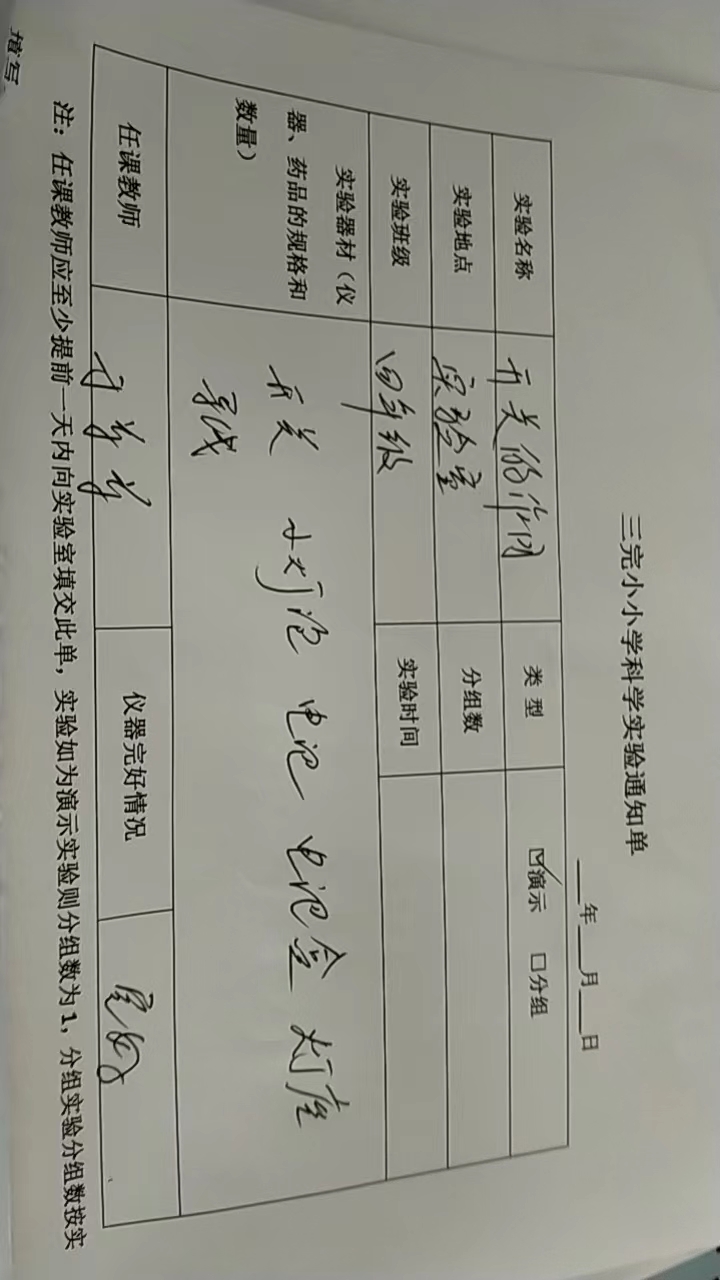 三完小小学科学实验通知单
___年___月___日
实验名称 开关的作用 类 型 ☑演示 ☐分组
实验地点 实验室 分组数
实验班级 四年级 实验时间
实验器材（仪
器、药品的规格和
数量）
开关 小灯泡 电池 电池盒 灯座
导线
任课教师 仪器完好情况 完好
注：任课教师应至少提前一天内向实验室填交此单，实验如为演示实验则分组数为1，分组实验分组数按实
填写